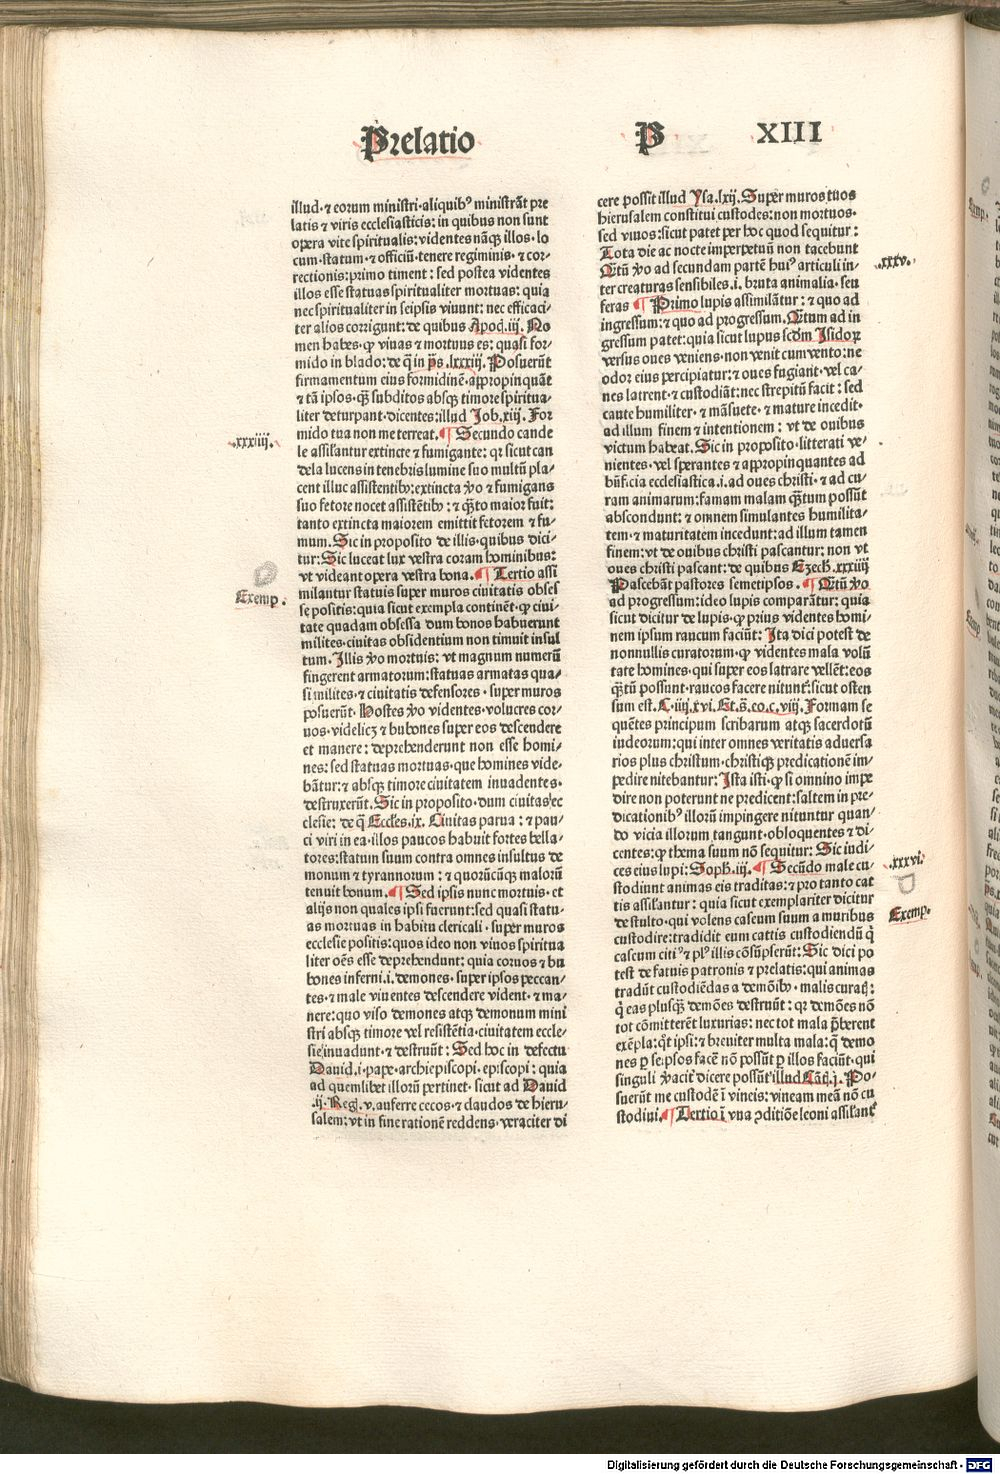 Prelatio
P XIII
illud· ⁊ eorum ministri·aliquibꝰ ministrãt pre
latis ⁊ viris ecclesiasticis: in quibus non sunt
opera vite spiritualis: videntes nãqꝫ illos· lo
cum·statum· ⁊ officiũ·tenere regiminis· ⁊ cor⸗
rectionis:primo timent : sed postea videntes
illos esse statuas spiritualiter mortuas: quia
nec spiritualiter in seipsis viuunt: nec efficaci⸗
ter alios corrigunt: de quibus Apoc̃.iij. No
men habes·ꝙ viuas ⁊ mortuus es: quasi for⸗
mido in blado: de q̃ in p̃s.lxxxiij. Posuerũt
firmamentum eius formidinẽ·appropinquãt
⁊ tã ipsos·qꝫ̃ subditos absqꝫ timore spiritua⸗
liter deturpant·dicentes:illud Job.xiij. For
mido tua non me terreat.¶ Secundo cande
le assil̃antur extincte ⁊ fumigante: qꝛ sicut can
dela lucens in tenebris lumine suo multũ pla⸗
cent illuc assistentibꝰ:extincta ṽo ⁊ fumigans
suo fetore nocet assistẽtibꝰ : ⁊ quãto maior fuit:
tanto extincta maiorem emittit fetorem ⁊ fu⸗
mum. Sic in proposito de illis· quibus dici⸗
tur: Sic luceat lux vestra coram hominibus:
vt videant opera vestra bona.¶ Tertio assi
milantur statuis super muros ciuitatis obses
se positis: quia sicut exempla continẽt·ꝙ ciui⸗
tate quadam obsessa dum bonos habuerunt
milites·ciuitas obsidentium non timuit insul
tum. Illis ṽo mortuis: vt magnum numerũ
fingerent armatorum:statuas armatas qua⸗
si milites·⁊ ciuitatis defensores· super muros
posuerũt. Hostes ṽo videntes·volucres cor⸗
uos·videlicꝫ ⁊ bubones super eos descendere
et manere: deprehenderunt non esse homi⸗
nes: sed statuas mortuas·que homines vide⸗
bãtur:⁊ absqꝫ timore ciuitatem inuadentes·
destruxerũt. Sic in proposito·dum ciuitas ec
clesie: de q̃ Eccl̃es.ix. Ciuitas parua : ⁊ pau⸗
ci viri in ea·illos paucos habuit fortes bella⸗
tores:statum suum contra omnes insultus de
monum ⁊ tyrannorum : ⁊ quorũcũqꝫ malorũ
tenuit bonum.¶ Sed ipsis nunc mortuis·et
alijs non quales ipsi fuerunt:sed quasi statu⸗
as mortuas in habitu clericali· super muros
ecclesie positis: quos ideo non viuos spiritua
liter oẽs esse deprehendunt: quia coruos ⁊ bu
bones inferni.i.demones·super ipsos peccan⸗
tes·⁊ male viuentes descendere vident·⁊ ma⸗
nere:quo viso demones atqꝫ demonum mini
stri absqꝫ timore vel resistẽtia·ciuitatem eccle⸗
sie inuadunt·⁊ destruũt: Sed hoc in defectu
Dauid.i.pape·archiepiscopi·episcopi: quia
ad quemlibet illorũ pertinet·sicut ad Dauid
.ij.Reg̃.v.auferre cecos·⁊ claudos de hieru⸗
salem:vt in fine rationẽ reddens·veraciter di
.xxxiiij.
Exemp.
cere possit illud Ysa.lxij. Super muros tuos
hierusalem constitui custodes:non mortuos·
sed viuos:sicut patet per hoc quod sequitur:
Tota die ac nocte imperpetuũ non tacebunt
Q̃tũ ṽo ad secundam partẽ huiꝰ articuli in⸗
ter creaturas sensibiles.i. bruta animalia· seu
feras ¶ Primo lupis assimilãtur : ⁊ quo ad
ingressum:⁊ quo ad progressum. Q̃tum ad in
gressum patet:quia sicut lupus scdm̃ Isidoꝝ
versus oues veniens·non venit cum vento:ne
odor eius percipiatur:⁊ oues fugiant·vel ca⸗
nes latrent·⁊ custodiãt:nec strepitũ facit : sed
caute humiliter·⁊ mãsuete·⁊ mature incedit·
ad illum finem ⁊ intentionem : vt de ouibus
victum habeat. Sic in proposito·litterati ve⸗
nientes·vel sperantes ⁊ appropinquantes ad
bñficia ecclesiastica.i.ad oues christi·⁊ ad cu⸗
ram animarum:famam malam qꝫ̃tum possũt
abscondunt: ⁊ omnem simulantes humilita⸗
tem·⁊ maturitatem incedunt:ad illum tamen
finem:vt de ouibus christi pascantur: non vt
oues christi pascant: de quibus Ezech̃.xxxiiij
Pascebãt pastores semetipsos . ¶ Q̃tũ ṽo
ad progressum:ideo lupis comparãtur: quia
sicut dicitur de lupis·ꝙ prius videntes homi⸗
nem ipsum raucum faciũt: Ita dici potest de
nonnullis curatorum·ꝙ videntes mala volũ
tate homines·qui super eos latrare vellẽt:eos
qꝫ̃tũ possunt·raucos facere nitunt̃:sicut osten
sum est.C.iiij.xvi. Et.s̃.eo.c.viij. Formam se
quẽtes principum scribarum atqꝫ sacerdotũ
iudeorum:qui inter omnes veritatis aduersa
rios plus christum·christiqꝫ predicationẽ im⸗
pedire nitebantur: Ista isti·ꝙ si omnino impe
dire non poterunt ne predicent:saltem in pre⸗
dicationibꝰ illorũ impingere nituntur quan⸗
do vicia illorum tangunt·obloquentes ⁊ di⸗
centes:ꝙ thema suum nõ sequitur: Sic iudi⸗
ces eius lupi: Soph̃.iij.¶ Secũdo male cu⸗
stodiunt animas eis traditas:⁊ pro tanto cat
tis assil̃antur : quia sicut exemplariter dicitur
de stulto·qui volens caseum suum a muribus
custodire:tradidit eum cattis custodiendũ q̃
caseum citiꝰ ⁊ plꝰ illis cõsũpserũt: Sic dici po
test de fatuis patronis ⁊ prelatis: qui animas
tradũt custodiẽdas a demõibꝰ·malis curat̃:
q̃ eas plusqꝫ̃ demões destruũt : qꝛ demões nõ
tot cõmitterẽt luxurias: nec tot mala p̃berent
exẽpla:q̃t ipsi:⁊ breuiter multa mala:q̃ demo
nes ꝑ seipsos facẽ nõ possũt ꝑ illos faciũt·qui
singuli ṽaciť dicere possũt illud Cãť.j. Po⸗
suerũt me custodẽ ĩ vineis: vineam meã nõ cu
stodiui.¶ Tertio ĩ vna ꝯditiõe leoni assil̃ant̃
.xxxv.
.xxxvi.
Exemp.
Digitalisierung gefördert durch die Deutsche Forschungsgemeinschaft - DFG